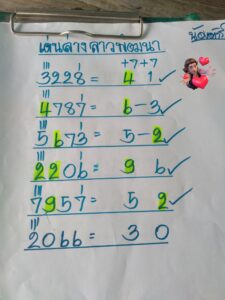 เด่นล่างสาวพัฒนา
+7+7
3228 = 4 1
4787 = 6-3 ✓
5673 = 5-2 ✓
2206 = 9 6 ✓
7957 = 5 2 ✓
2066 = 3 0